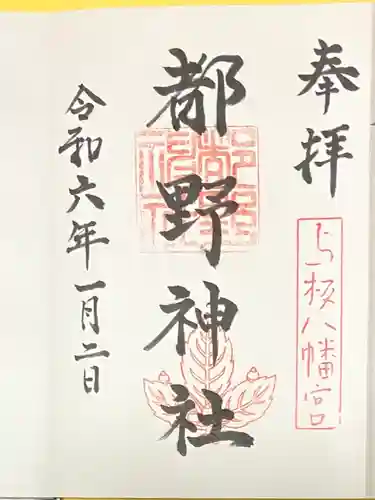 奉拝
与板八幡宮
都野神社
令和六年一月二日